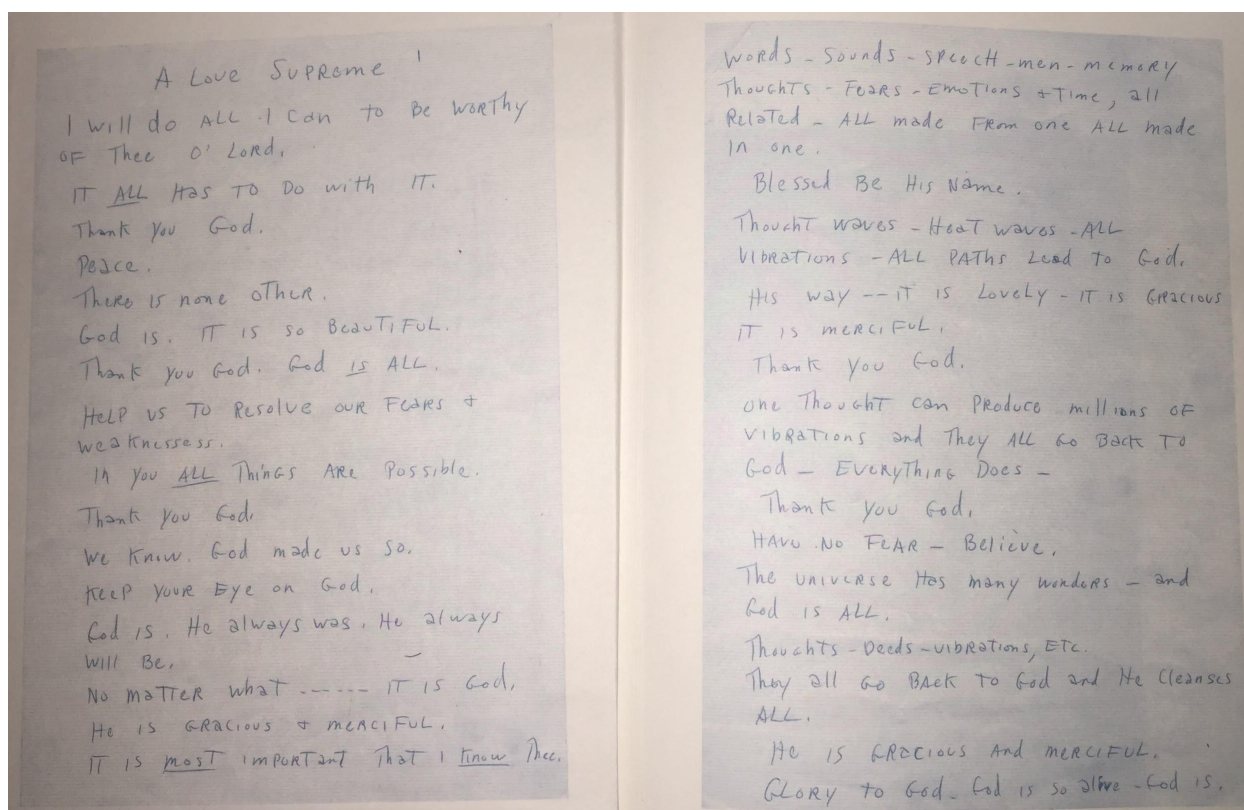 A Love Supreme 1
I will do ALL I can to Be worthy
OF Thee O' Lord.
IT ALL Has TO Do with IT.
Thank You God.
Peace.
There is none other.
God is. IT is so Beautiful.
Thank you God. God is ALL.
HELP us To Resolve our Fears +
weaknessess.
In you ALL Things Are Possible.
Thank you God.
We Know. God made us so.
Keep your Eye on God.
God is. He always was. He always
will Be.
No matter what ------ IT is God.
He is GRacious + merciful.
IT is most important That I Know Thee.
Words - Sounds - Speech - men - memory
Thoughts - Fears - Emotions + Time, all
Related - ALL made From one ALL made
in one.
Blessed Be His Name.
Thought waves - Heat waves - ALL
Vibrations - ALL PATHs Lead to God.
His way -- IT is Lovely - IT is Gracious
IT is merciful.
Thank you God.
One Thought can Produce millions OF
Vibrations and They ALL Go Back To
God - EVERYTHING Does -
Thank you God.
Have No Fear - Believe.
The universe Has many wonders - and
God is ALL.
Thoughts - Deeds - vibrations, ETC.
They all Go Back To God and He Cleanses
ALL.
He is GRacious And merciful.
GLORY to God - God is so alive - God is.